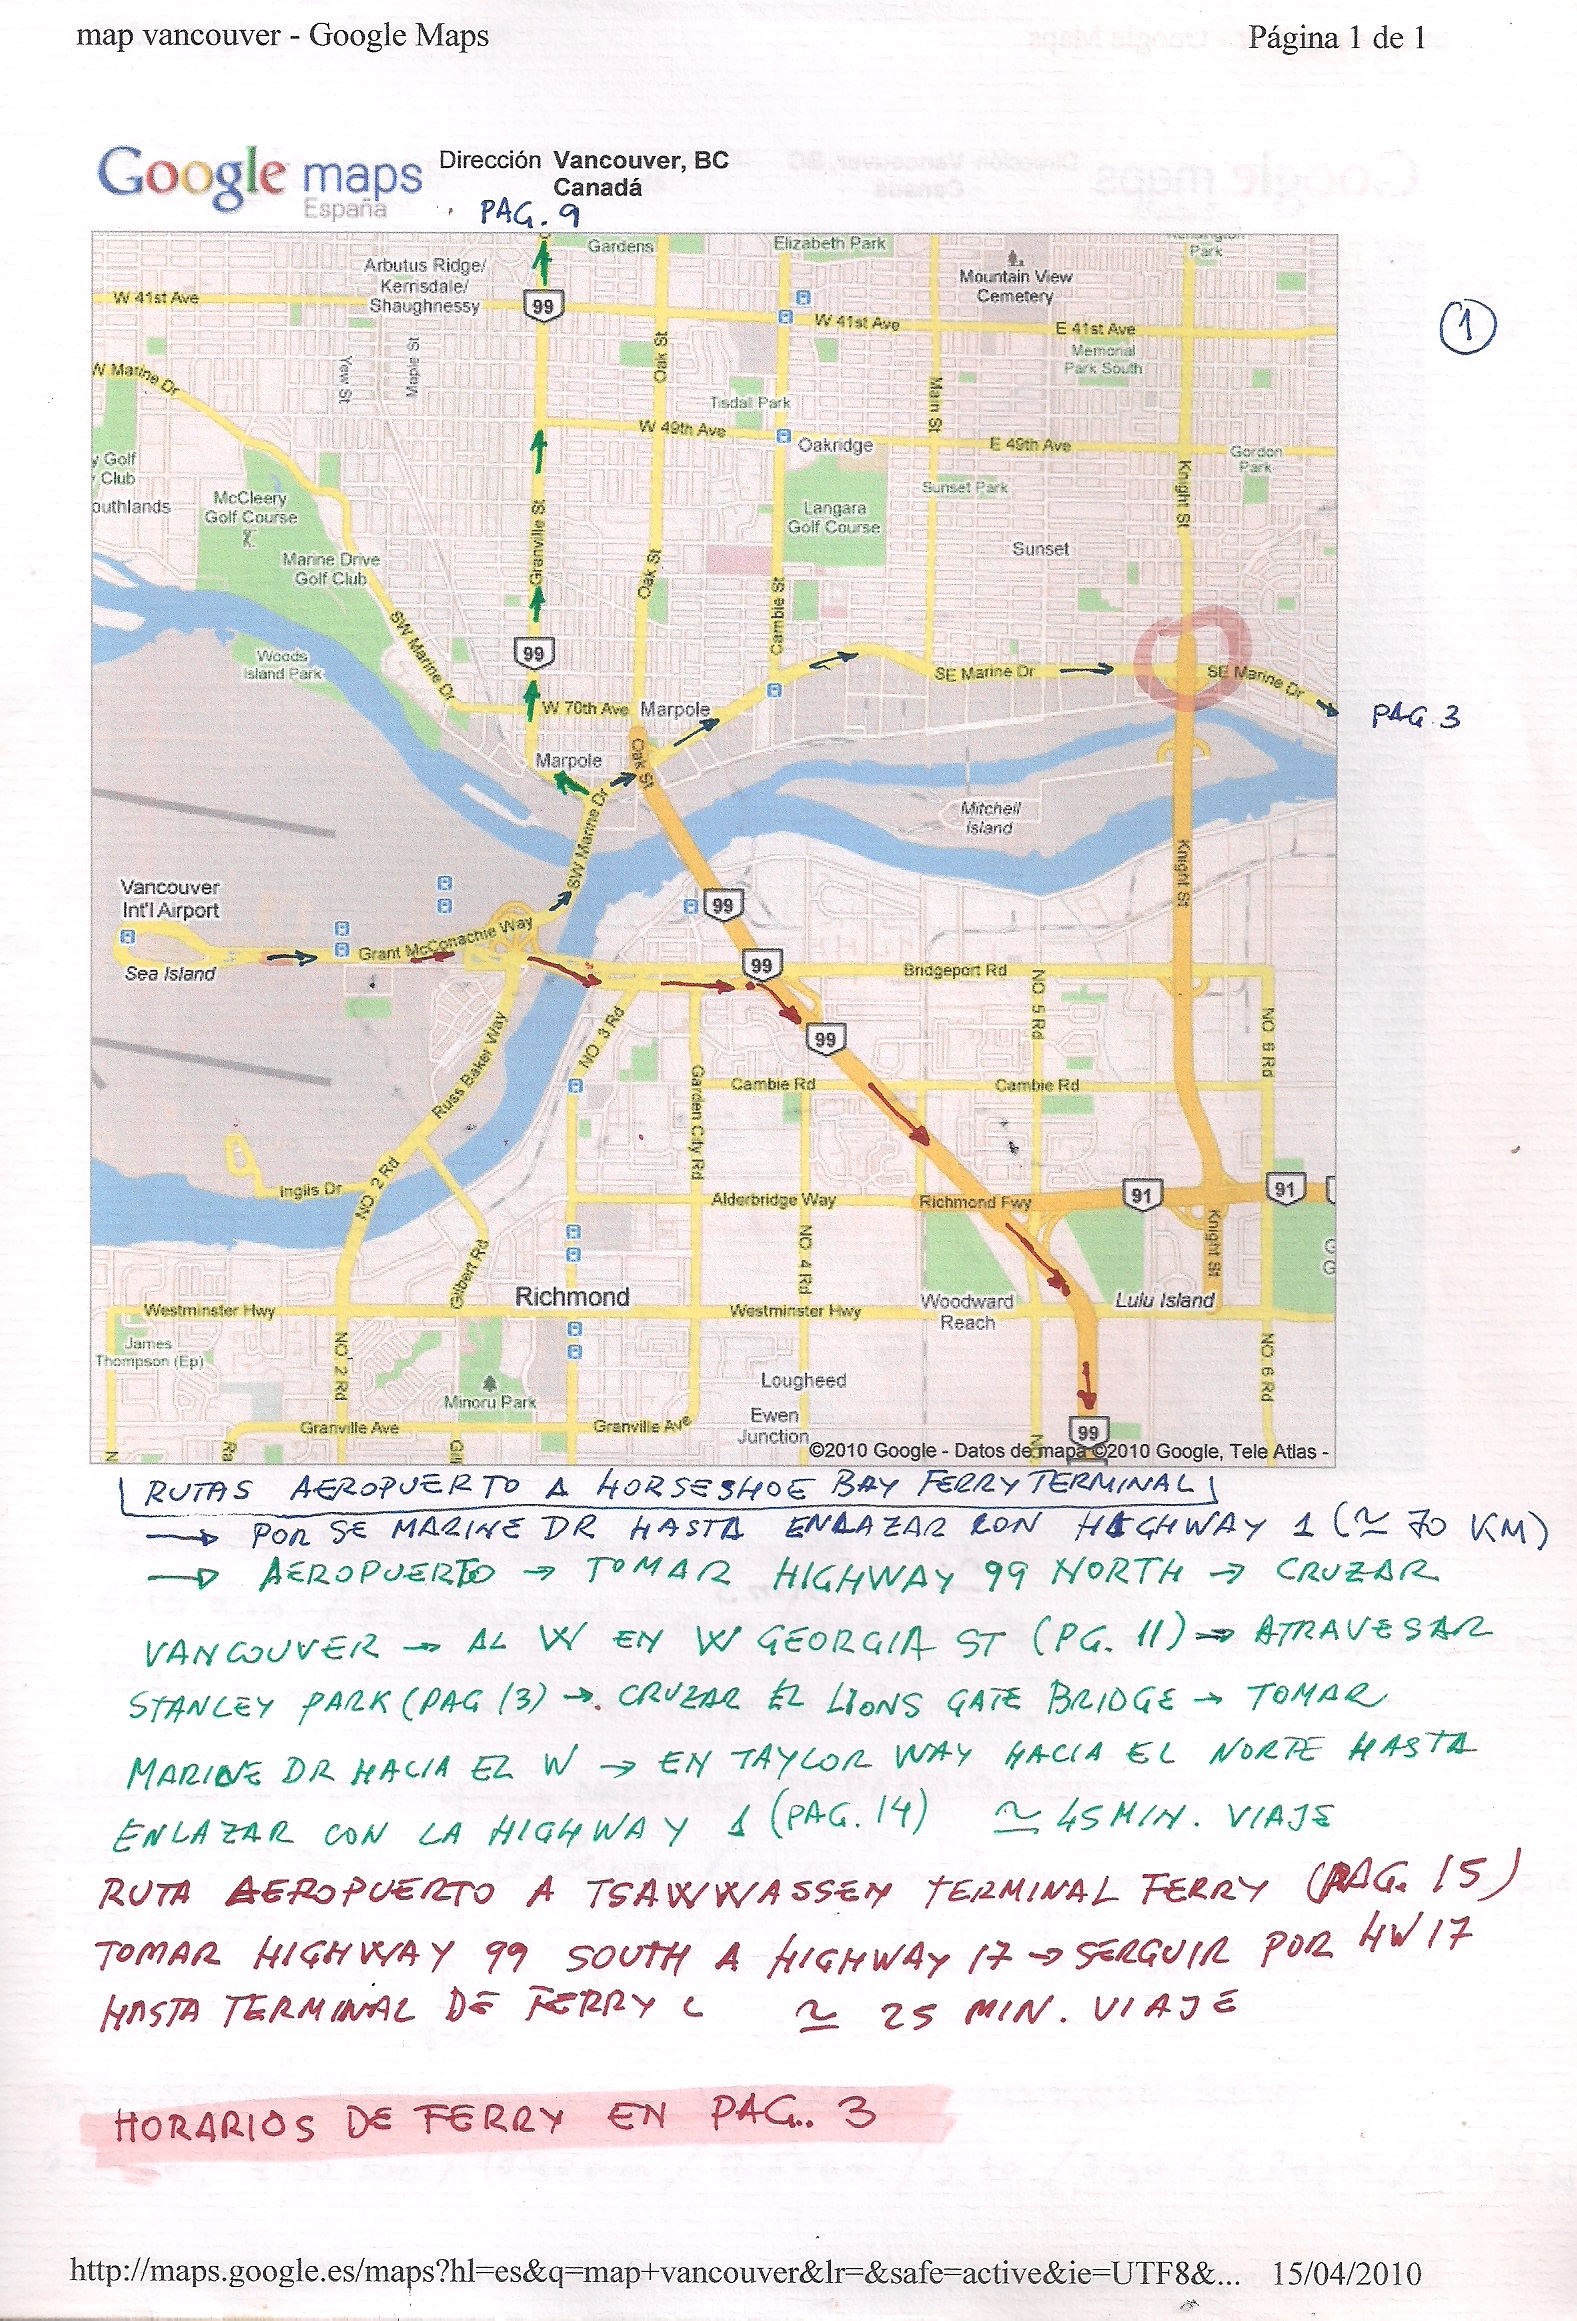 map vancouver - Google Maps
Página 1 de 1
Google maps
España
Dirección Vancouver, BC
Canadá
PAG. 9
Gardens
Elizabeth Park
Park
Arbutus Ridge/
Kerrisdale/
Shaughnessy
Mountain View
Cemetery
W 41st Ave
99
W 41st Ave
E 41st Ave
1
Memorial
Park South
W Marine Dr
Yew St
Maple St
Oak St
Tisdal Park
Main St
W 49th Ave
Oakridge
E 49th Ave
Gordon
Park
y Golf
Club
outhlands
McCleery
Golf Course
Sunset Park
Knight St
Langara
Golf Course
Granville St
Marine Drive
Golf Club
Oak St
Sunset
Cambie St
SW Marine Dr
99
Woods
Island Park
SE Marine Dr
SE Marine Dr
W 70th Ave
Marpole
PAG. 3
Oak St
Marpole
SW Marine Dr
Mitchell
Island
Knight St
Vancouver
Int'l Airport
99
Grant McConachie Way
Sea Island
99
Bridgeport Rd
NO. 5 Rd
NO. 6 Rd
NO. 3 Rd
99
Russ Baker Way
Garden City Rd
Cambie Rd
Cambie Rd
Inglis Dr
NO. 2 Rd
Alderbridge Way
Richmond Fwy
91
91
Knight St
Gilbert Rd
NO. 4 Rd
Richmond
Woodward
Reach
Lulu Island
Westminster Hwy
Westminster Hwy
James
Thompson (Ep)
NO. 2 Rd
NO. 6 Rd
Minoru Park
Lougheed
Granville Ave
Granville Ave
Ewen
Junction
99
©2010 Google - Datos de mapa ©2010 Google, Tele Atlas -
RUTAS AEROPUERTO A HORSESHOE BAY FERRY TERMINAL
→ POR SE MARINE DR HASTA ENLAZAR CON HIGHWAY 1 (≃ 70 KM)
→ AEROPUERTO → TOMAR HIGHWAY 99 NORTH → CRUZAR
VANCOUVER → AL W EN W GEORGIA ST (PG. 11) → ATRAVESAR
STANLEY PARK (PAG 13) → CRUZAR EL LIONS GATE BRIDGE → TOMAR
MARINE DR HACIA EL W → EN TAYLOR WAY HACIA EL NORTE HASTA
ENLAZAR CON LA HIGHWAY 1 (PAG. 14) ≃ 45 MIN. VIAJE
RUTA AEROPUERTO A TSAWWASSEN TERMINAL FERRY (PAG. 15)
TOMAR HIGHWAY 99 SOUTH A HIGHWAY 17 → SERGUIR POR HW 17
HASTA TERMINAL DE FERRY ≃ 25 MIN. VIAJE
HORARIOS DE FERRY EN PAG.. 3
http://maps.google.es/maps?hl=es&q=map+vancouver&lr=&safe=active&ie=UTF8&... 15/04/2010